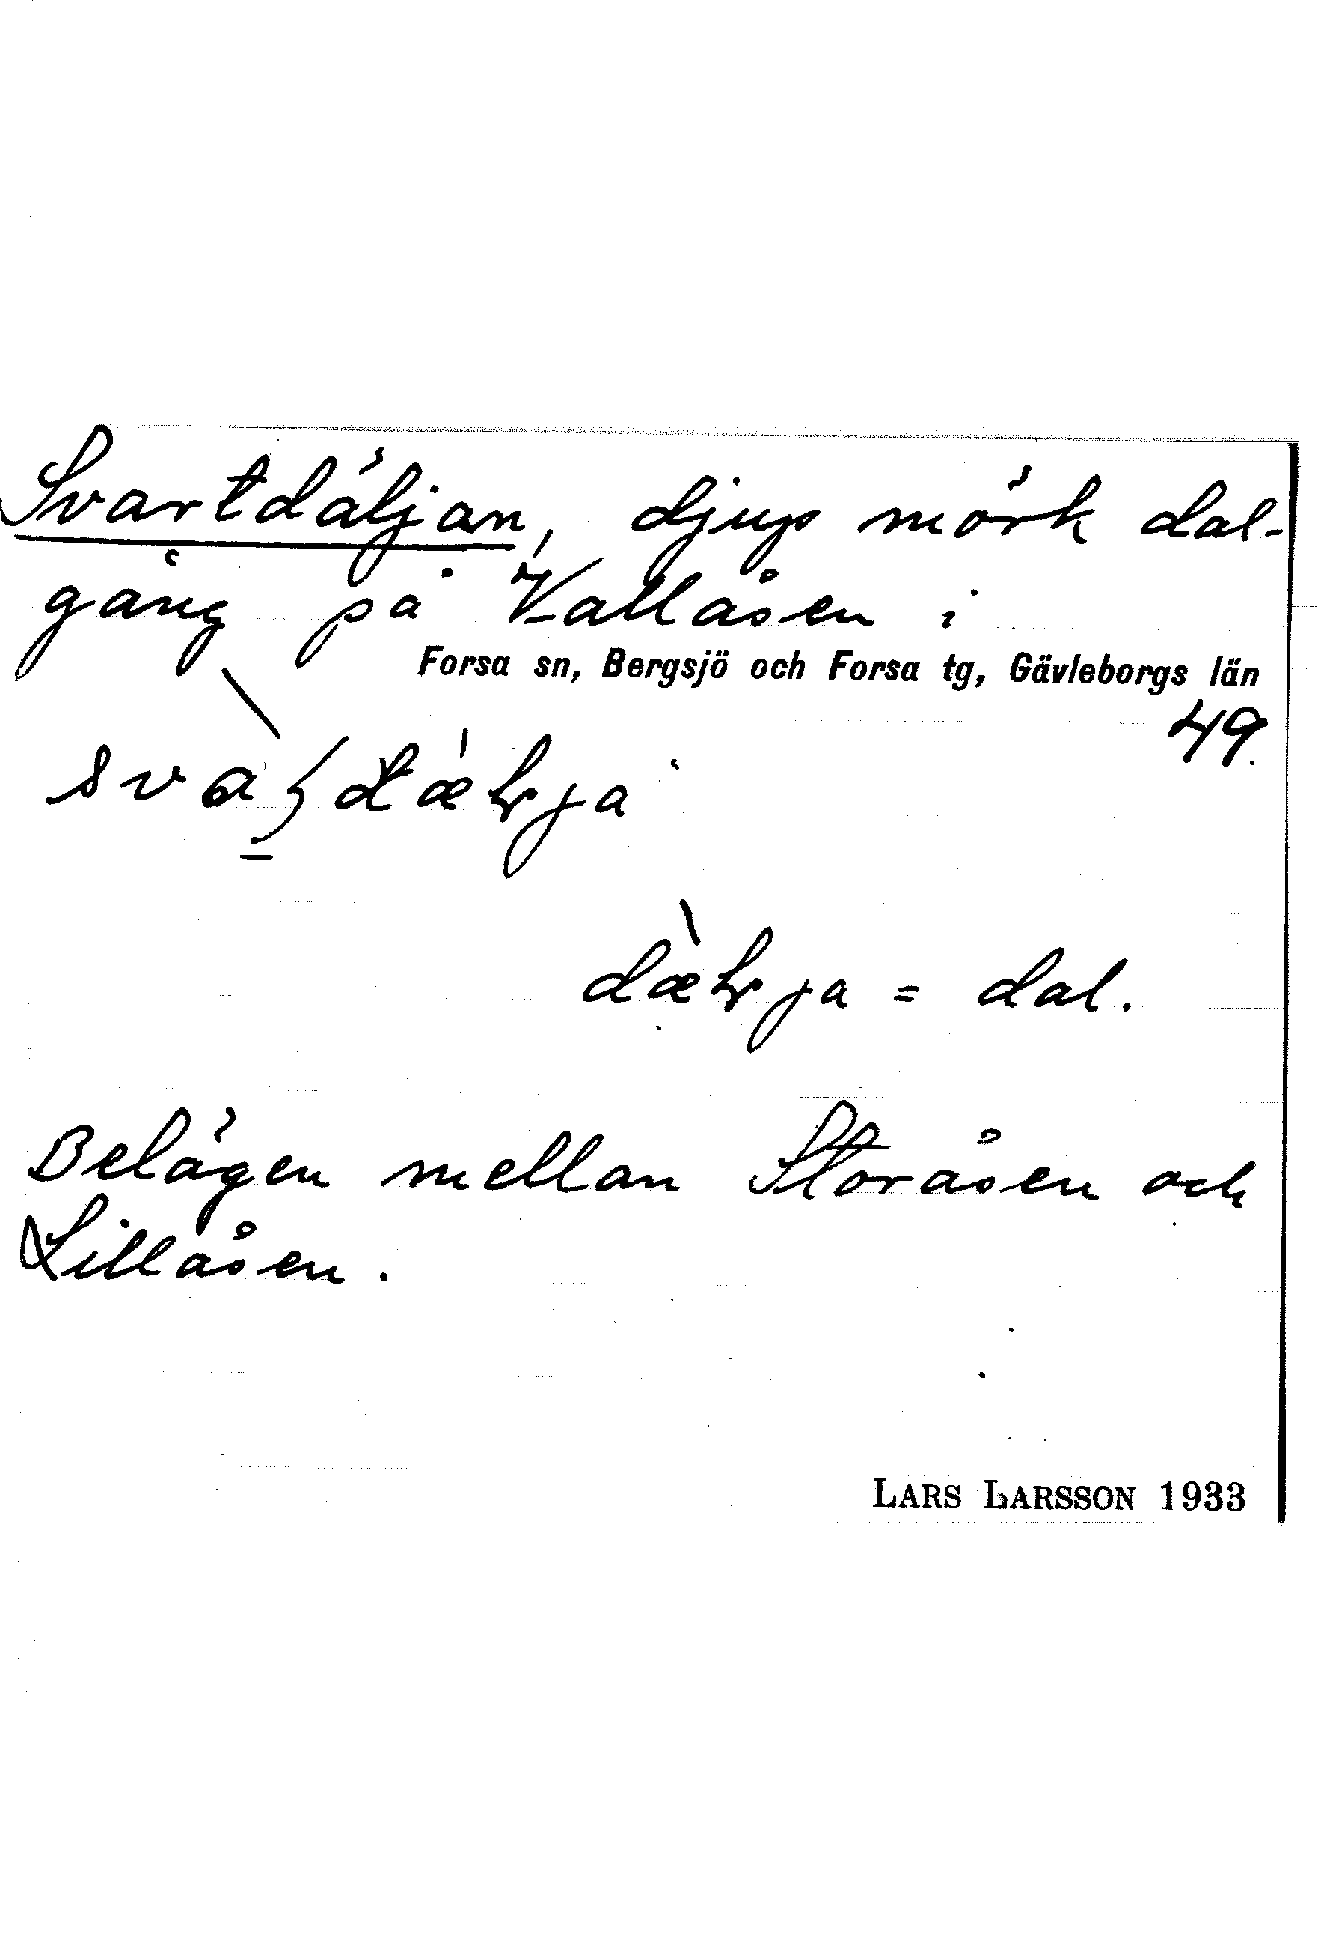 Svartdäljan, djup mörk dal-
gång på Vallåsen i
Forsa sn, Bergsjö och Forsa tg, Gävleborgs län
49.
= dal.
Belägen mellan Storåsen och
Lillåsen.
LARS LARSSON 1933